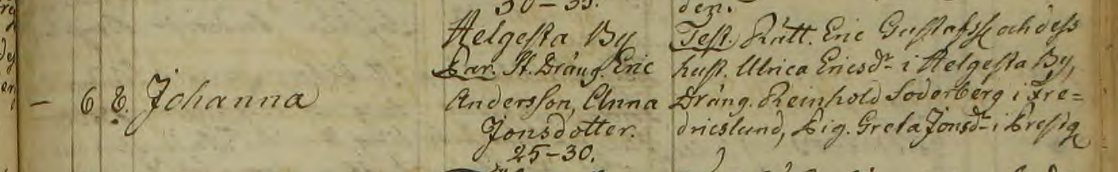 30-35.
den.
Helgesta By
Par. St. Dräng. Eric
Andersson, Anna
Jonsdotter.
25-30.
Test. Rätt. Eric Gustafss. och dess
hust. Ulrica Ericsdr. i Helgesta By,
Dräng. Reinhold Söderberg i Fre=
dricslund, Pig. Greta Jonsdr. i
- 6 8. Johanna